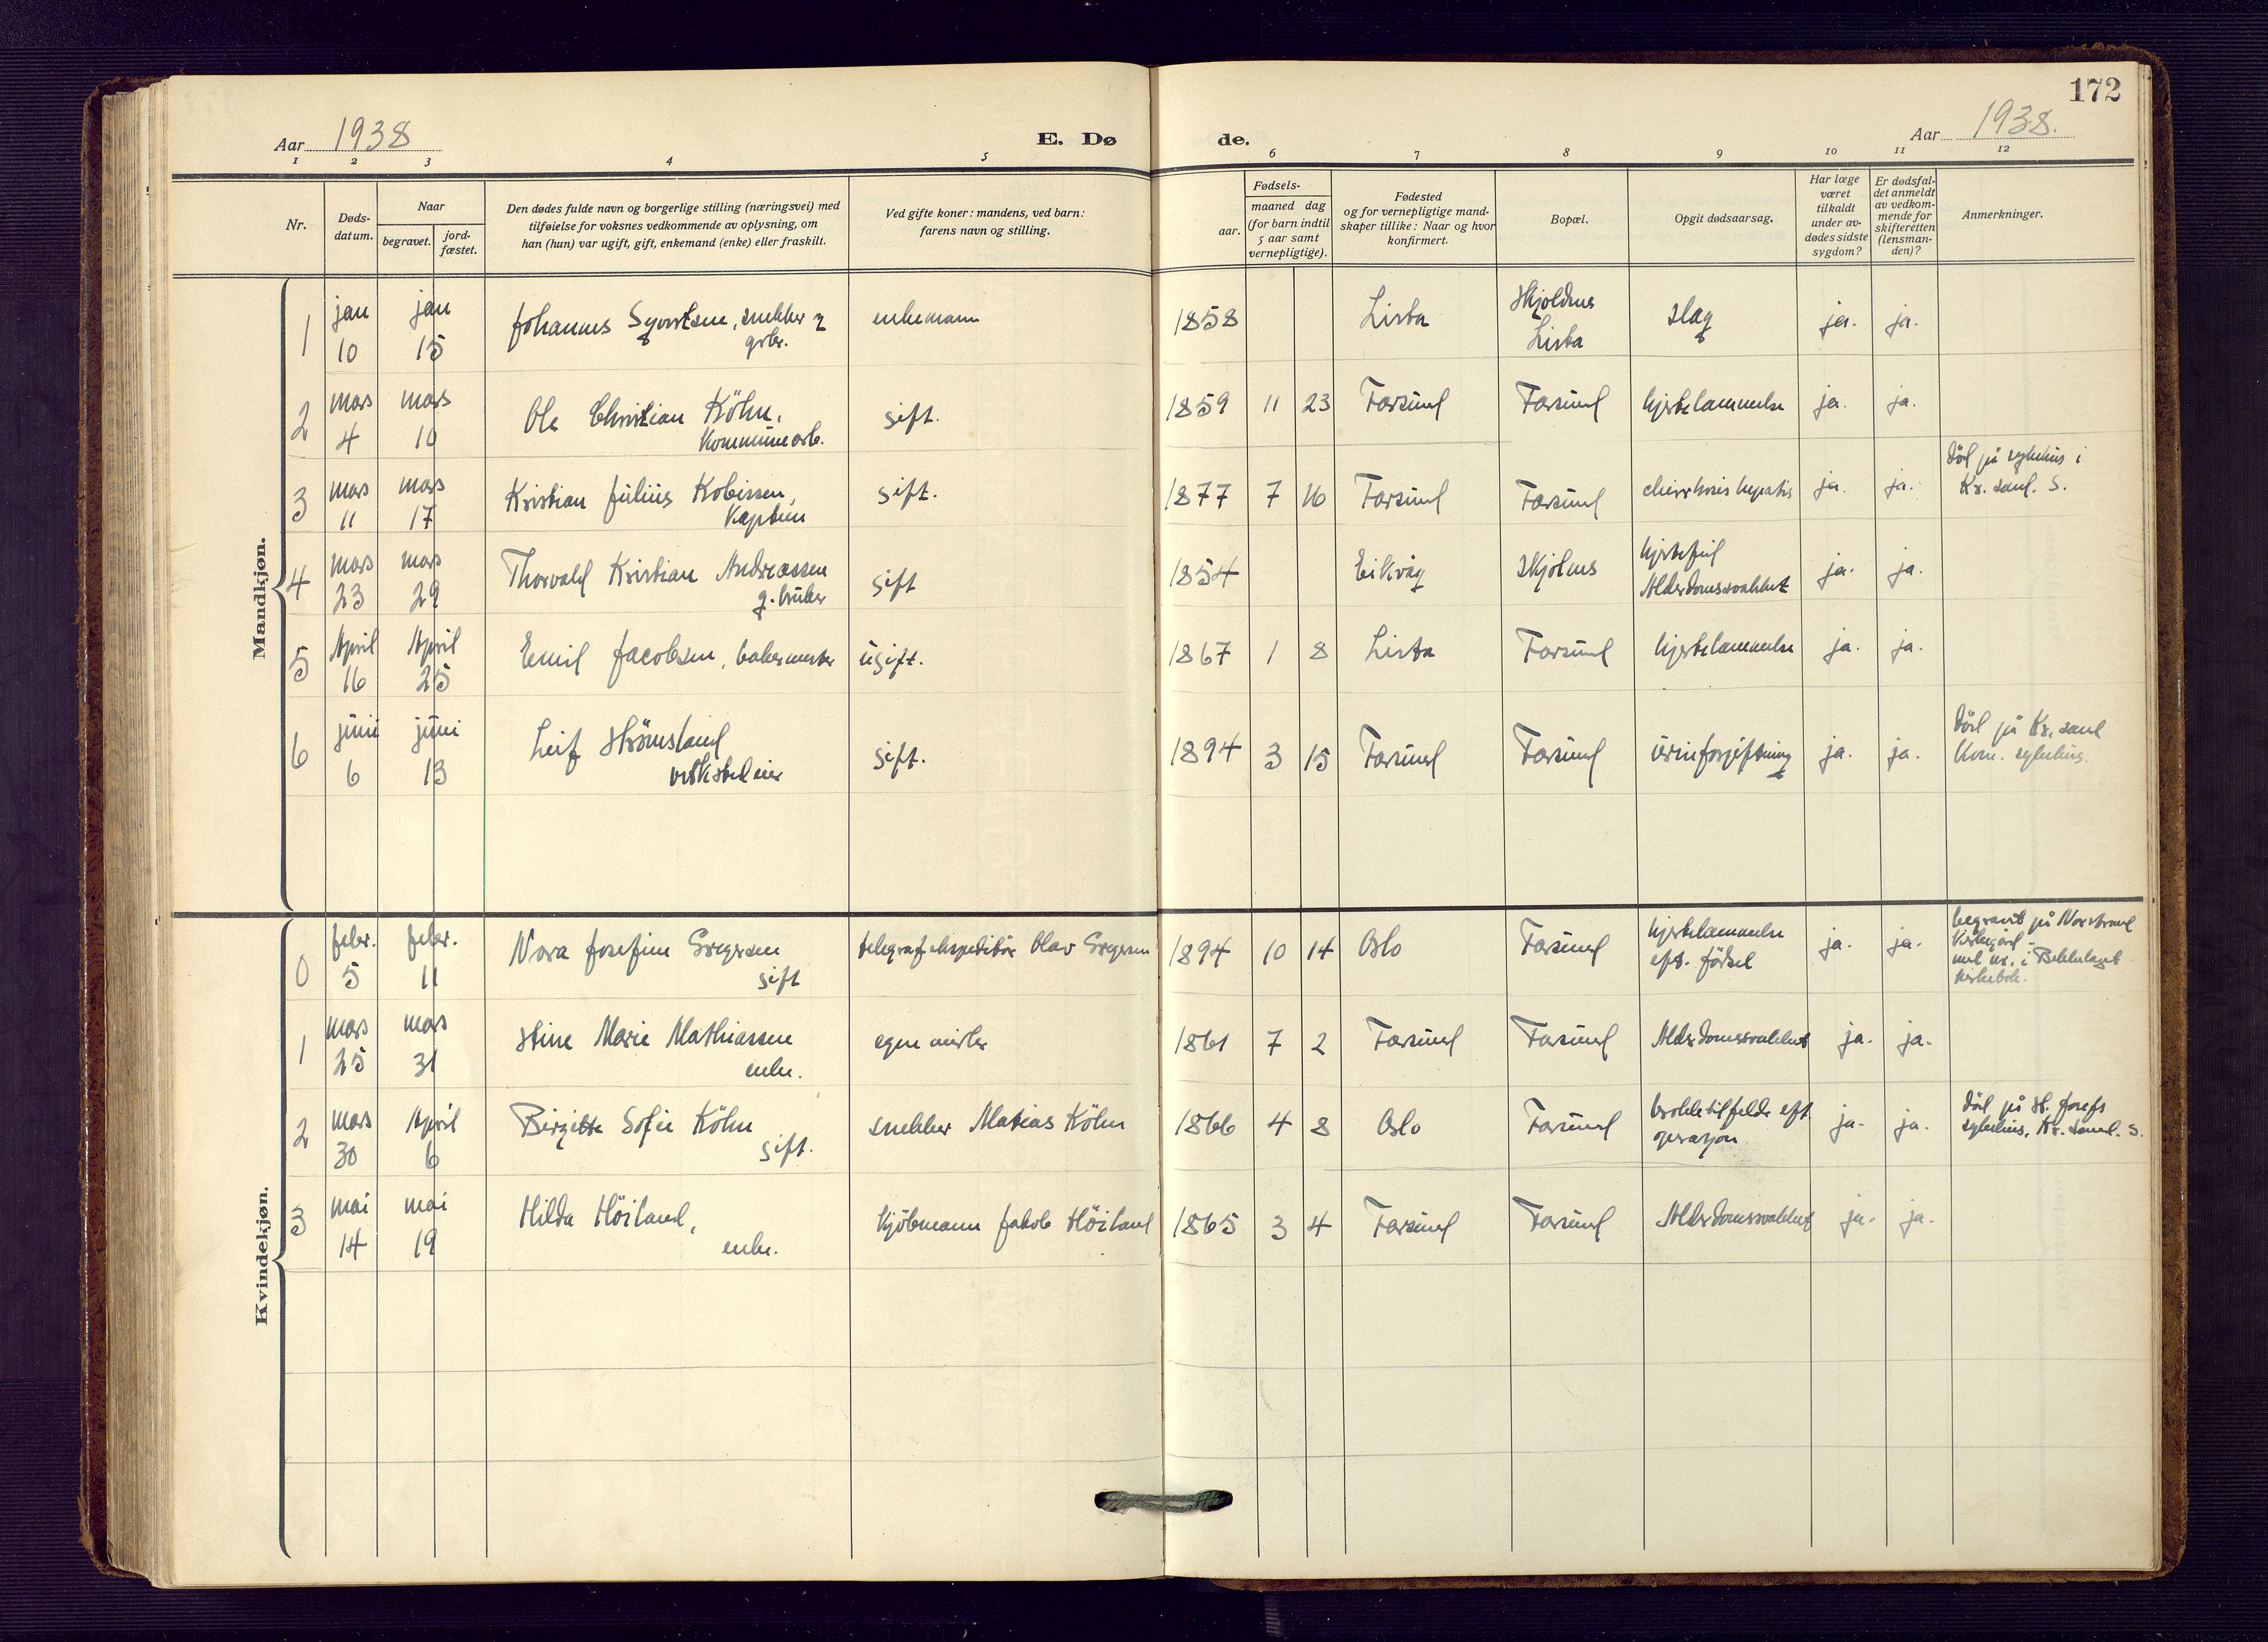 172
Aar 1938
E. Dø
de.
Aar 1938.
1 2 3 4 5 6 7 8 9 10 11 12
Nr.
Døds-
datum.
Naar
begravet.
jord-
fæstet.
Den dødes fulde navn og borgerlige stilling (næringsvei) med
tilføielse for voksnes vedkommende av oplysning, om
han (hun) var ugift, gift, enkemand (enke) eller fraskilt.
Ved gifte koner: mandens, ved barn:
farens navn og stilling.
Fødsels-
aar.
maaned dag
(for barn indtil
5 aar samt
vernepligtige).
Fødested
og for vernepligtige mand-
skaper tillike: Naar og hvor
konfirmert.
Bopæl.
Opgit dødsaarsag.
Har læge
været
tilkaldt
under av-
dødes sidste
sygdom?
Er dødsfal-
det anmeldt
av vedkom-
mende for
skifteretten
(lensman-
den)?
Anmerkninger.
Mandkjøn.
1 jan 10 jan 15 Johannes Syvertsen, snekker
grbr.
enkemann 1858 Lista
Lista
slag ja. ja.
2 mars 4 mars 10 Ole Christian Köhn,
Kommunearb.
gift. 1859 11 23 Farsund Farsund hjertelammelse ja. ja.
3 mars 11 mars 17 Kristian Julius Kobissen,
Kaptein
gift. 1877 7 16 Farsund Farsund hepatis ja. ja.
Död på sykehus i
Kr.sand. S.
4 mars 23 mars 29 Thorvald Kristian Andreassen
g.bruker
gift 1854 Eikvåg Skjolnes hjertefeil
Alderdomssvakhet
ja. ja.
5 April 16 April 25 Emil Jacobsen, bakermester ugift. 1867 1 8 Lista Farsund hjertelammelse ja. ja.
6 juni 6 juni 13 Leif Strömsland
verkstedeier
gift. 1894 3 15 Farsund Farsund urinforgiftning ja. ja.
Död på Kr.sand
Kom. sykehus.
Kvindekjøn.
0 febr. 5 febr. 11 Nora Josefine Gregersen
gift
telegrafekspeditör Olav Gregersen 1894 10 14 Oslo Farsund hjertelammelse
eft. födsel
ja. ja.
begravet på Norstrand
Kirkegård -
i Bekkelaget
kirkebok.
1 mars 25 mars 31 Stine Marie Mathiassen
enke.
egne midler 1861 7 2 Farsund Farsund Alderdomssvakhet ja. ja.
2 mars 30 April 6 Birgitte Sofie Köhn
gift.
snekker Matias Köhn 1866 4 8 Oslo Farsund tilfelde eft
operasjon
ja. ja.
död på St. Josefs
sykehus, Kr.sand. S.
3 mai 14 mai 19 Hilda Höiland,
enke.
Kjöbmann Jakob Höiland 1865 3 4 Farsund Farsund Alderdomssvakhet ja. ja.